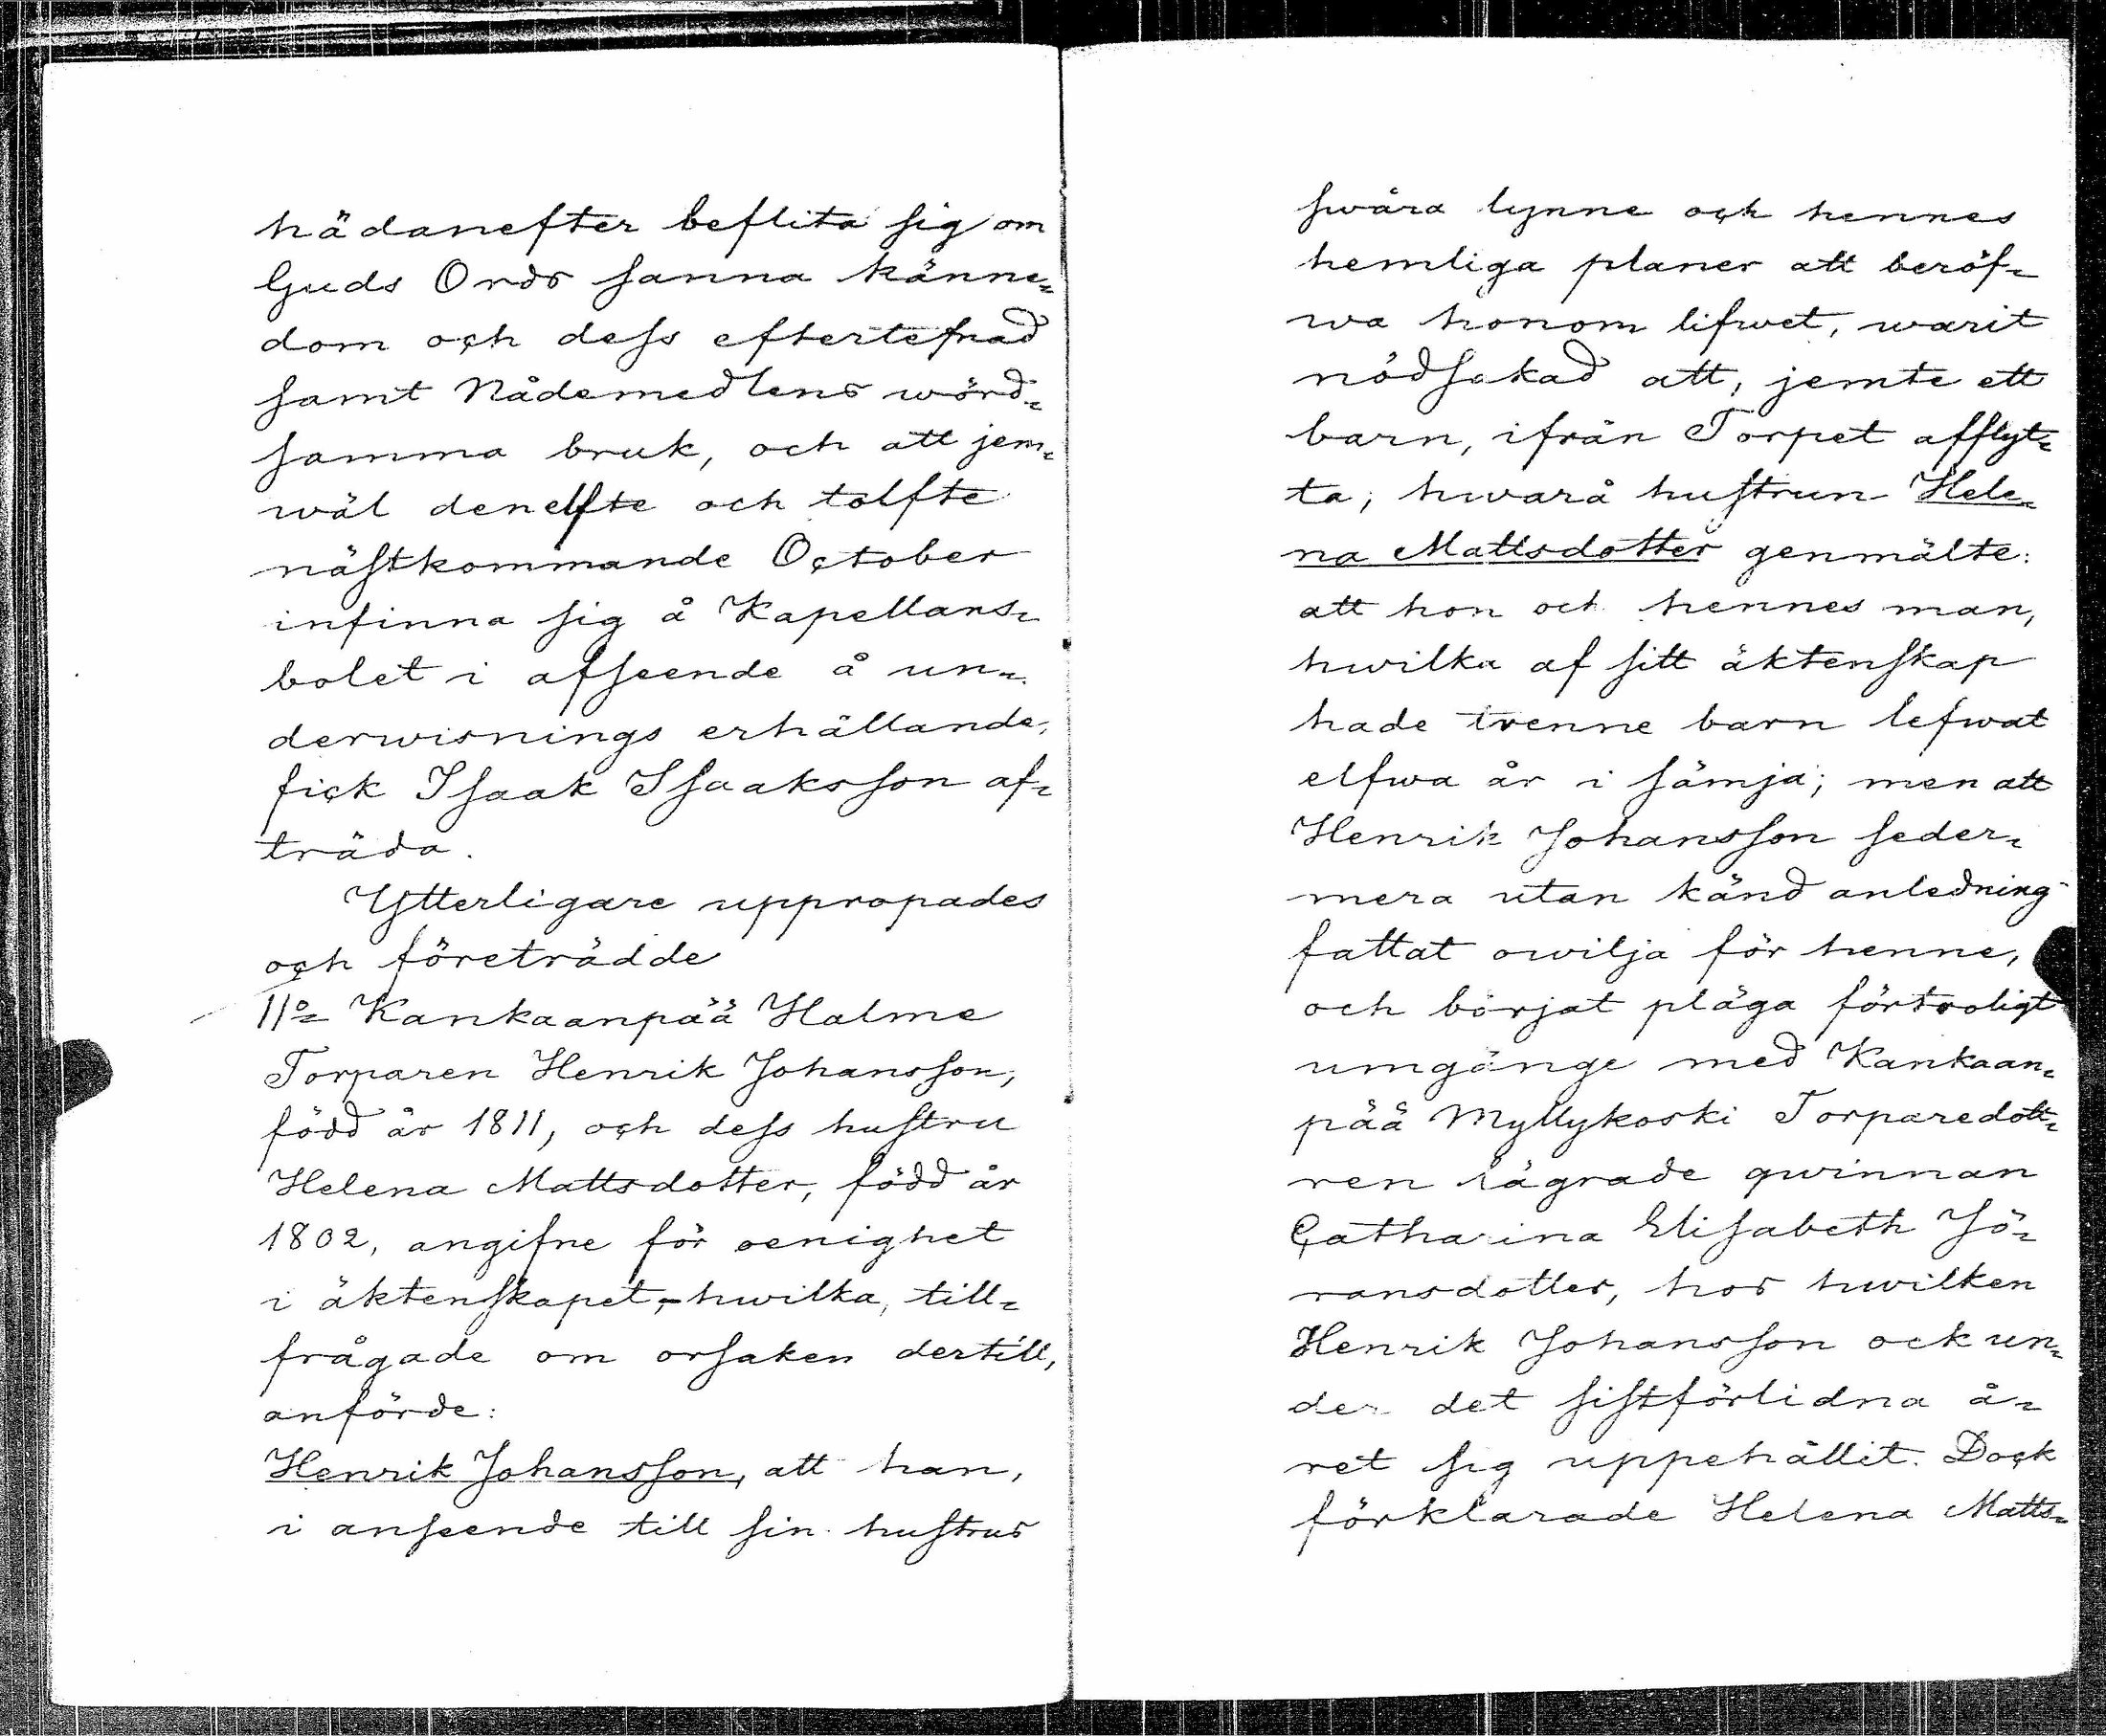 hädanefter beflita sig om
Guds Ords sanna känne=
dom och dess efterlefnad
samt Nådemedlens wörd=
samma bruk, och att jem=
wäl den elfte och tolfte
nästkommande October
infinna sig å Kapellans=
bolet i afseende å un=
derwisnings erhållande,
fick Isaak Isaaksson af=
träda.
Ytterligare uppropades
och företrädde
11o= Kankaanpää Halme
Torparen Henrik Johansson,
född år 1811, och dess hustru
Helena Mattsdotter, född år
1802, angifne för oenighet
i äktenskapet,- hwilka, till=
frågade om orsaken dertill,
anförde:
Henrik Johansson, att han,
i anseende till sin hustrus
swåra lynne och hennes
hemliga planer att beröf=
wa honom lifwet, warit
nödsakad att, jemte ett
barn, ifrån Torpet afflyt=
ta; hwarå hustrun Hele=
na Mattsdotter genmälte:
att hon och hennes man,
hwilka af sitt äktenskap
hade trenne barn lefwat
elfwa år i sämja; men att
Henrik Johansson seder=
mera utan känd anledning
fattat owilja för henne,
och börjat pläga förtroligt
umgänge med Kankaan=
pää Myllykoski Torparedott=
ren lägrade qwinnan
Catharina Elisabeth Jö=
ransdotter, hos hwilken
Henrik Johansson ock un=
der det sistförlidna å=
ret sig uppehållit. Dock
förklarade Helena Matts=